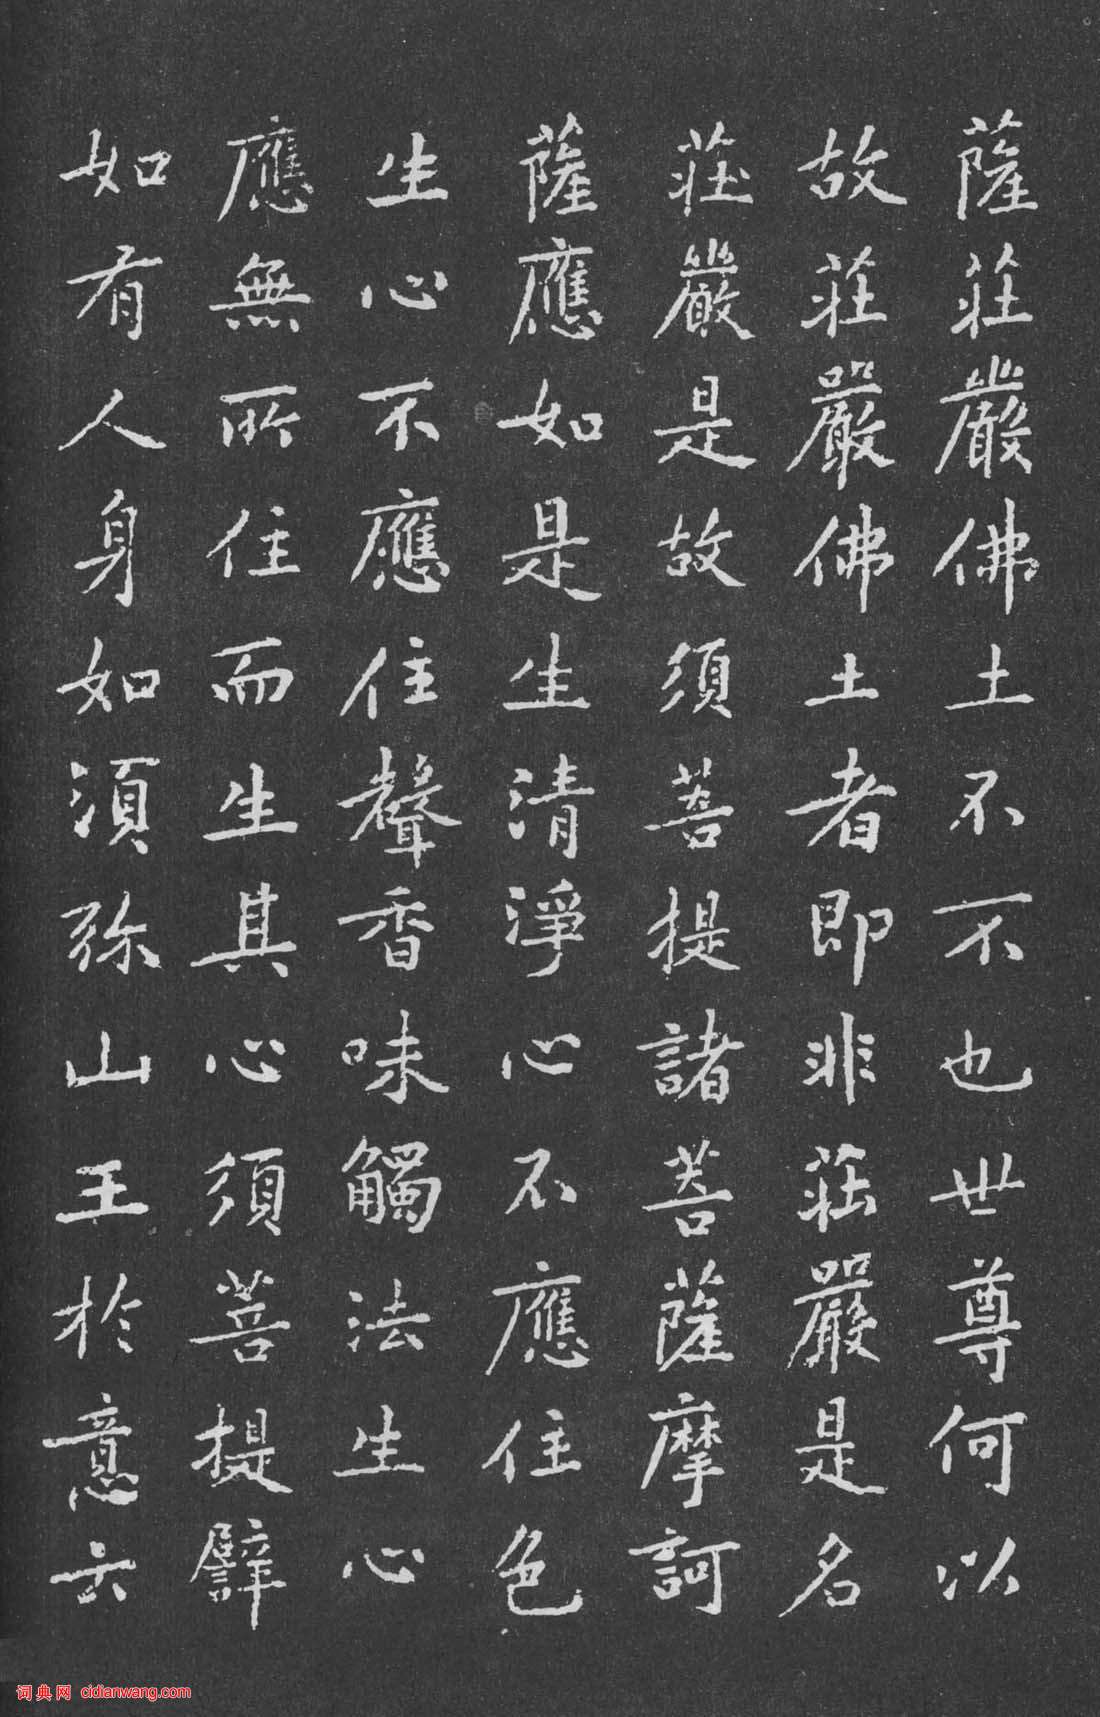 薩莊嚴佛土不不也世尊何以
故莊嚴佛土者即非莊嚴是名
莊嚴是故須菩提諸菩薩摩訶
薩應如是生清淨心不應住色
生心不應住聲香味觸法生心
應無所住而生其心須菩提譬
如有人身如須弥山王於意云
词典网 cidianwang.com